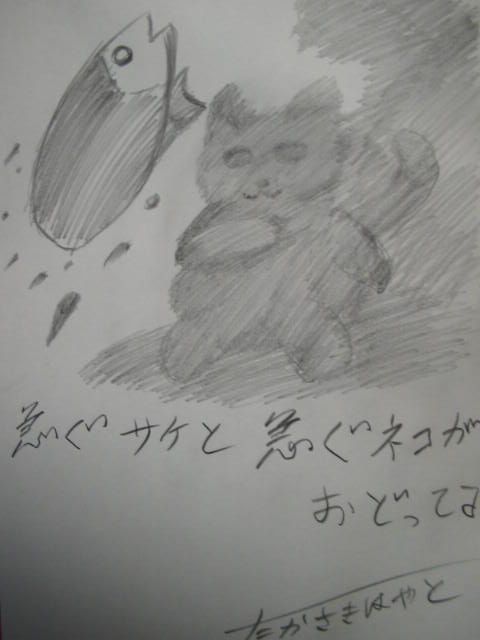 急ぐサケと 急ぐネコが
おどってる
たかさきはやと